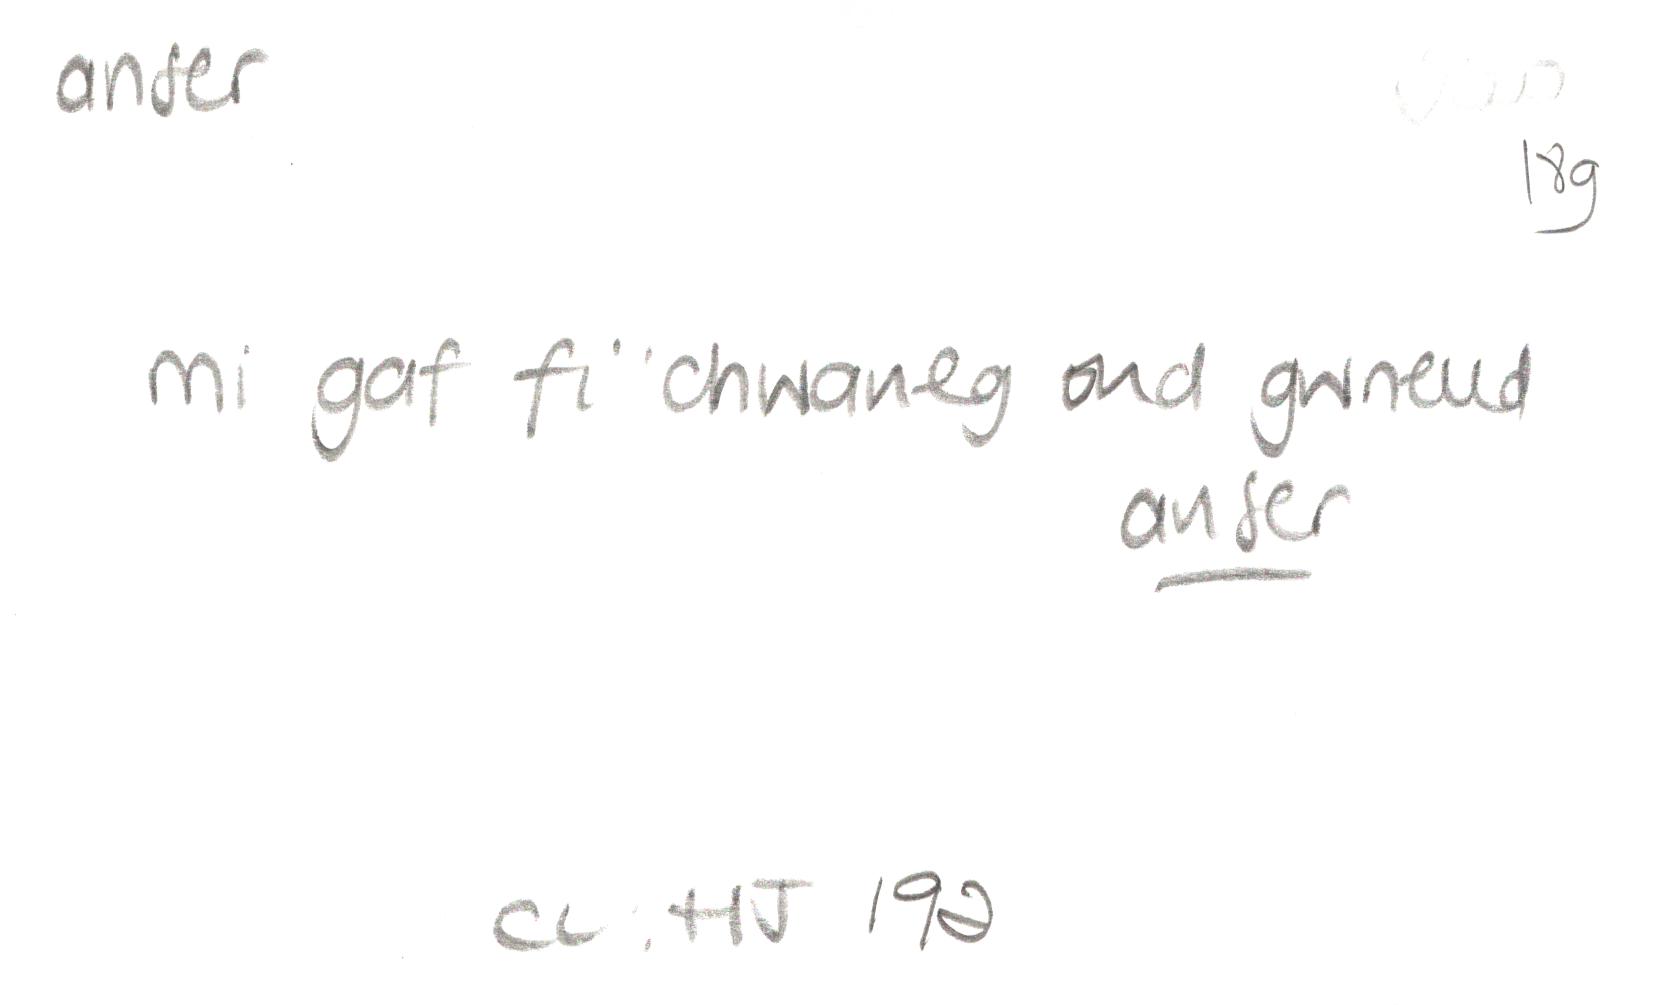 anser
18g
mi gaf fi 'chwaneg ond gwneud
anser
CL : HJ 192